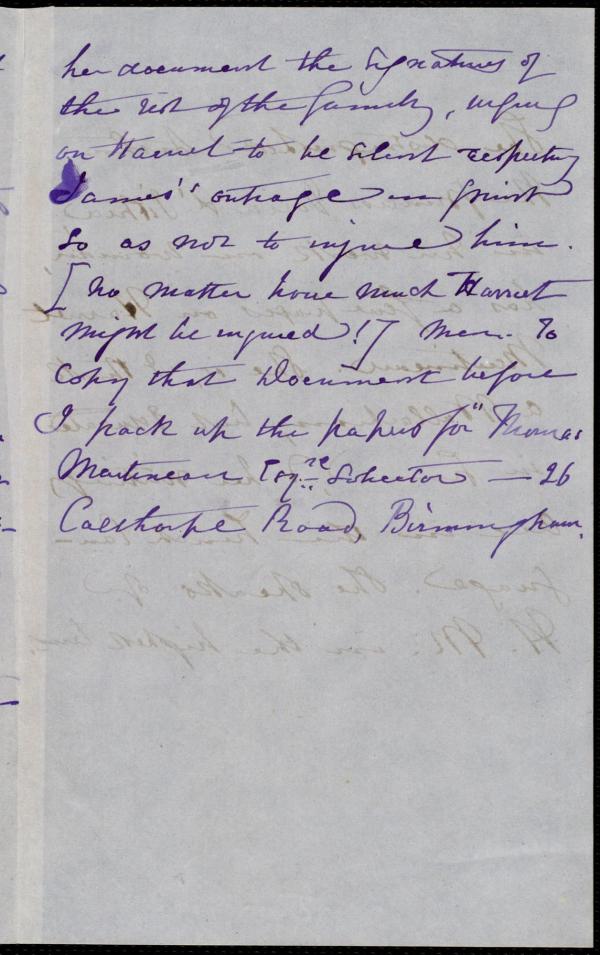 her document the signatures of
the rest of the family, urging
on Harriet to be silent respecting
James's outrage in print
so as not to injure him.
[no matter how much Harriet
might be injured!] Mem. To
copy that Document before
I pack up the papers for "Thomas
Martineau Esqre. Solicitor — 26
Calthorpe Road, Birmingham.